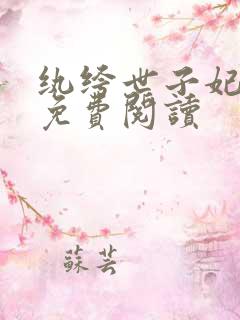 纨绔世子妃
免費閱讀
蘇芸